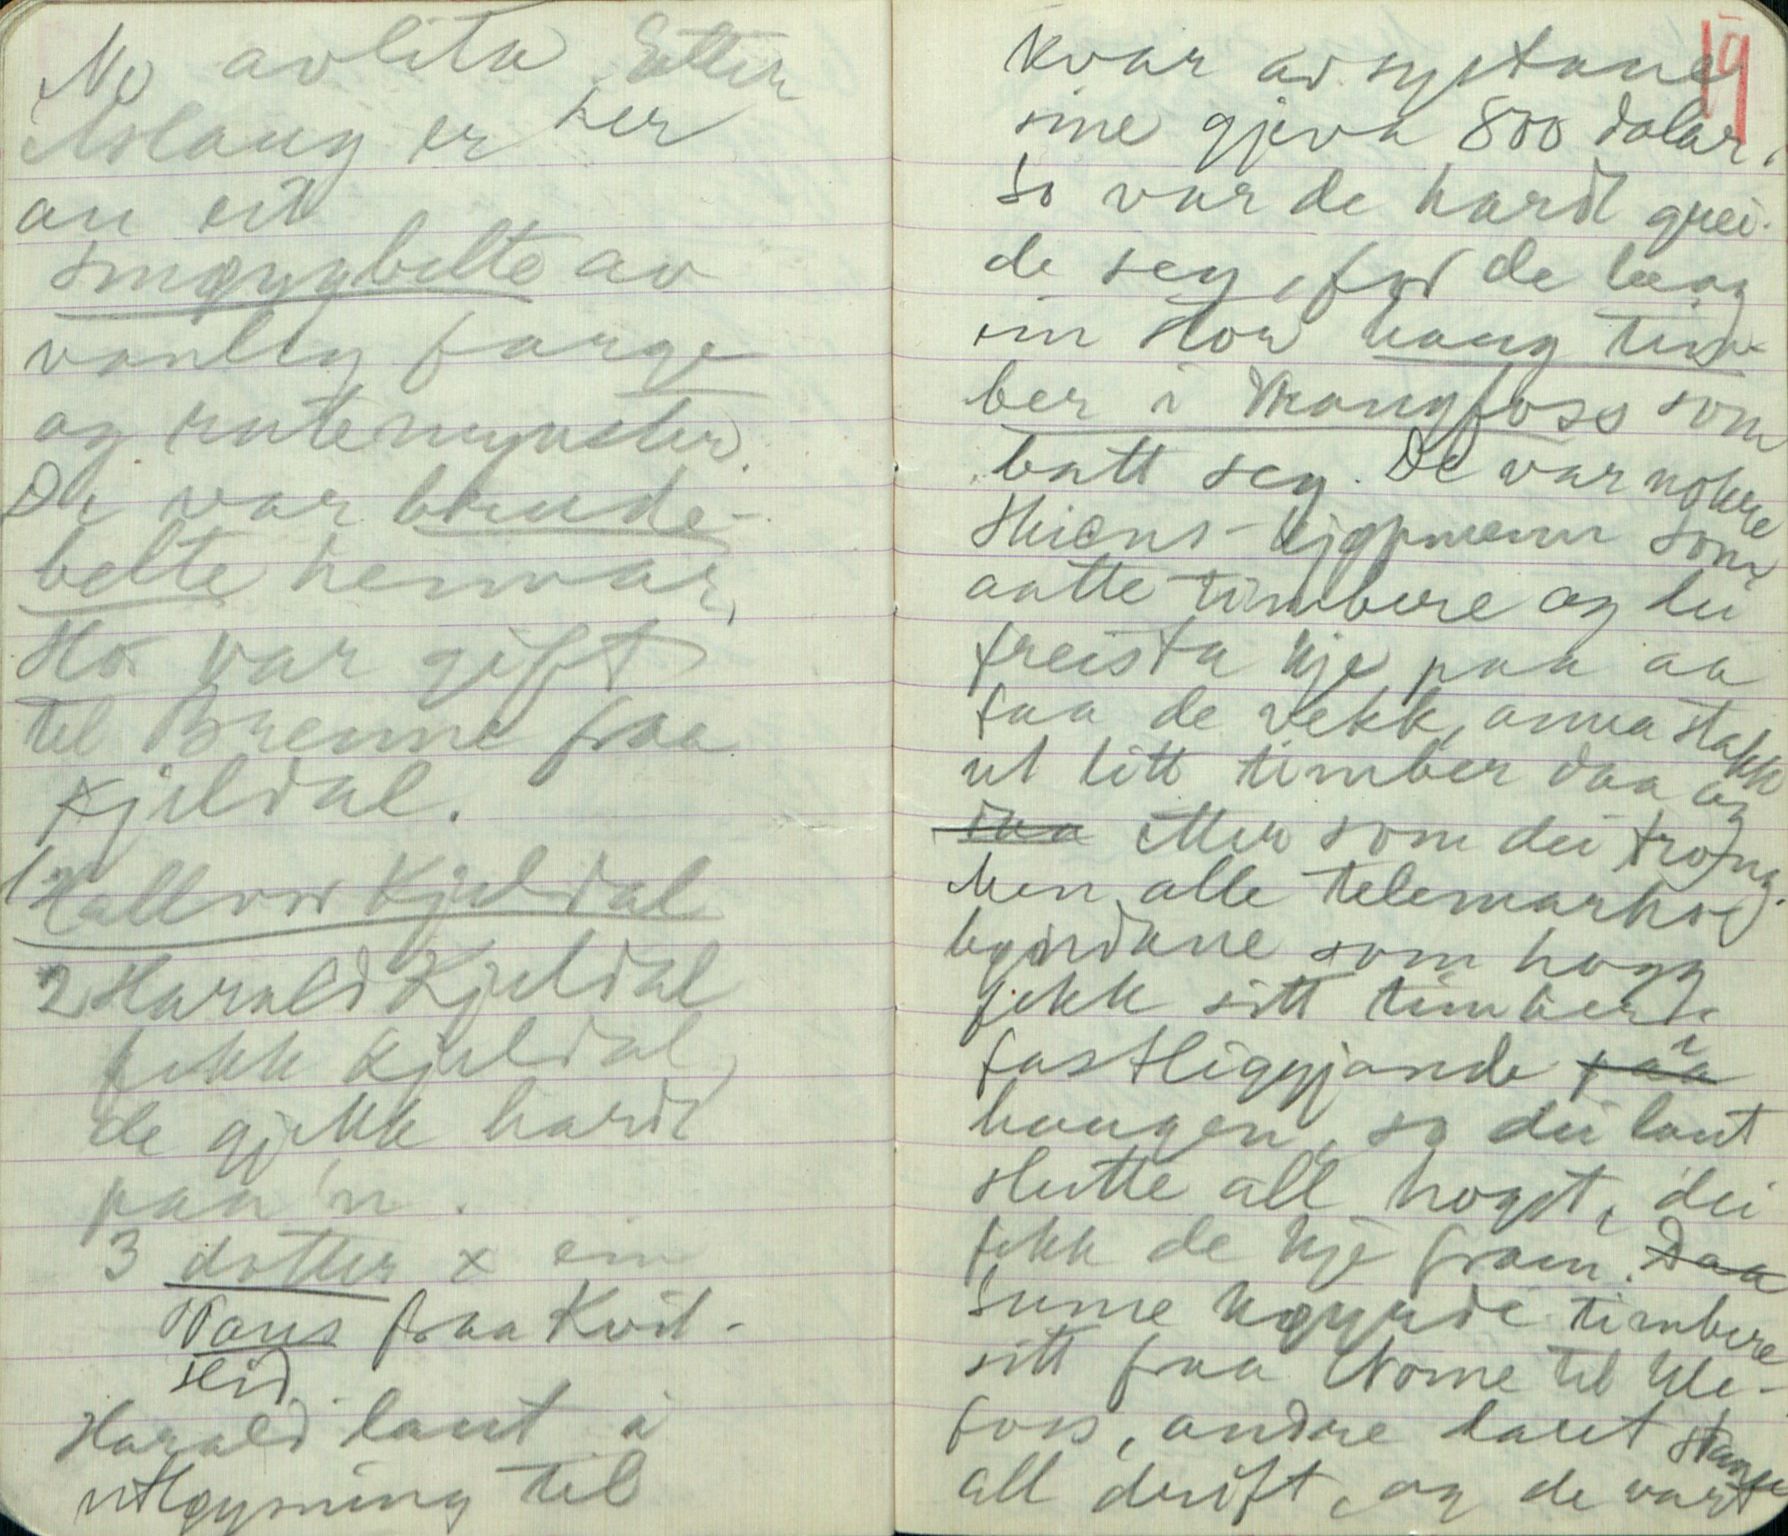 No avlita Etter
Aslaug er her
au eit
smøygbelte av
vanleg farge
og rutemynster.
De var brude-
belte hennar,
Ho var gift
til Brenne fraa
Kjeldal.
1 Hallvor Kjeldal
2 Harald Kjeldal
fekk Kjeldal,
de gjekk hardt
paa 'n.
3 dotter x ein
Naus fraa Kvit-
seid.
Harald laut i
utløysning til
19
kvar av systane
sine gjeva 800 dalar,
so var de hardt grei-
de seg, for de laag
ein stor haug tim-
ber i Vrangfoss som
batt seg. De var nokre
Skiens-kjøpmenn som
aatte timbere og dei
freista kje paa aa
faa de vekk, anna stakk
ut litt timber daa og
daa etter som dei trong.
Men alle telemarks
bygdane som hogg
fekk sitt timber
fastliggjande paa i
haugen, so dei laut
slutte all hogst, dei
fekk de kje fram. Daa
Sume køyrde timbere
sitt fraa Nome til Ule-
foss, andre laut stanse
all drift, og de vart